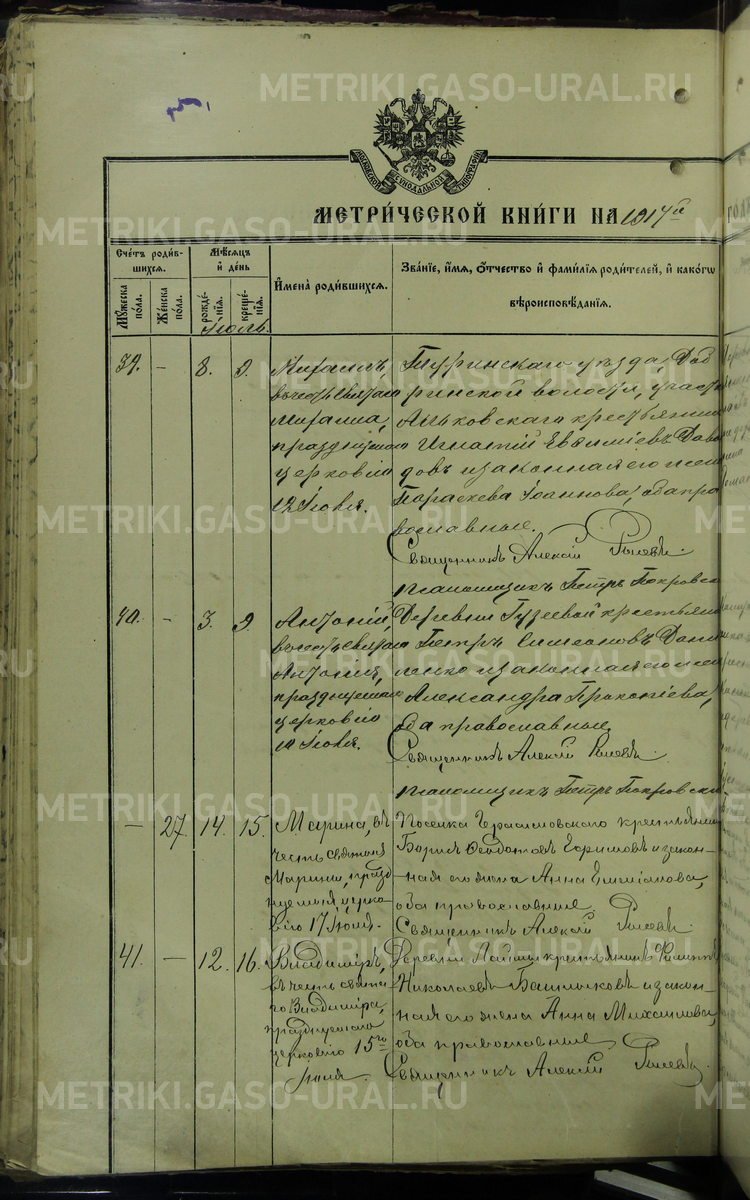 METRIKI.GASO-URAL.RU
МОСКОВСКОЙ СѴНОДАЛЬНОЙ ТИПОГРАФІИ
МЕТРИ́ЧЕСКОЙ КНИ́ГИ НА 1917й
Сче́тъ роди́в-
шихся.
Мꙋ́жеска по́ла.
Же́нска по́ла.
Мѣ́сяцъ
и́ де́нь
рожде́-
нїя.
креще́-
нїя.
Іюль.
И҆мена̀ роди́вшихся.
Зва́нїе, и҆́мя, ѻ҆́тчество и҆ фами́лїя роди́телей, и҆ како́гѡ
вѣроисповѣ́данїя.
39. — 8. 9.
Михаилъ,
въ честь святаго
Михаила,
празднуемаго
церковію
12 Іюля.
Туринскаго уѣзда,
ринской волости, участк
крестьянин
Игнатій Евѳиміевъ Даве
довъ и законная его жен
Параскева Іоаннова, оба пра
вославные.
Священникъ Алексій
Псаломщикъ Петръ Покровск
40. — 3. 9.
Антоній,
въ честь святаго
Антонія,
празднуемаго
церковію
10 Іюля.
Деревни крестьян
Петръ Симеоновъ Дани
ленко и законная его жен
Александра Прокопіева,
оба православные.
Священникъ Алексій
Псаломщикъ Петръ Покровск
— 27 14. 15.
Марина, въ
честь святыя
Марины, празд
нуемыя церко
вію 17 Іюля.
Поселка Герасимовскаго крестьянин
Борисъ Ѳеодотовъ Ефимовъ и закон-
ная его жена Анна
оба православные.
Священникъ Алексій
41. — 12. 16.
Владиміръ,
въ честь свята
го Владиміра,
празднуемаго
церковію 15го
Іюля.
Деревни крестьянинъ
Николаевъ и закон-
ная его жена Анна Михаилова,
оба православные.
Священникъ Алексій